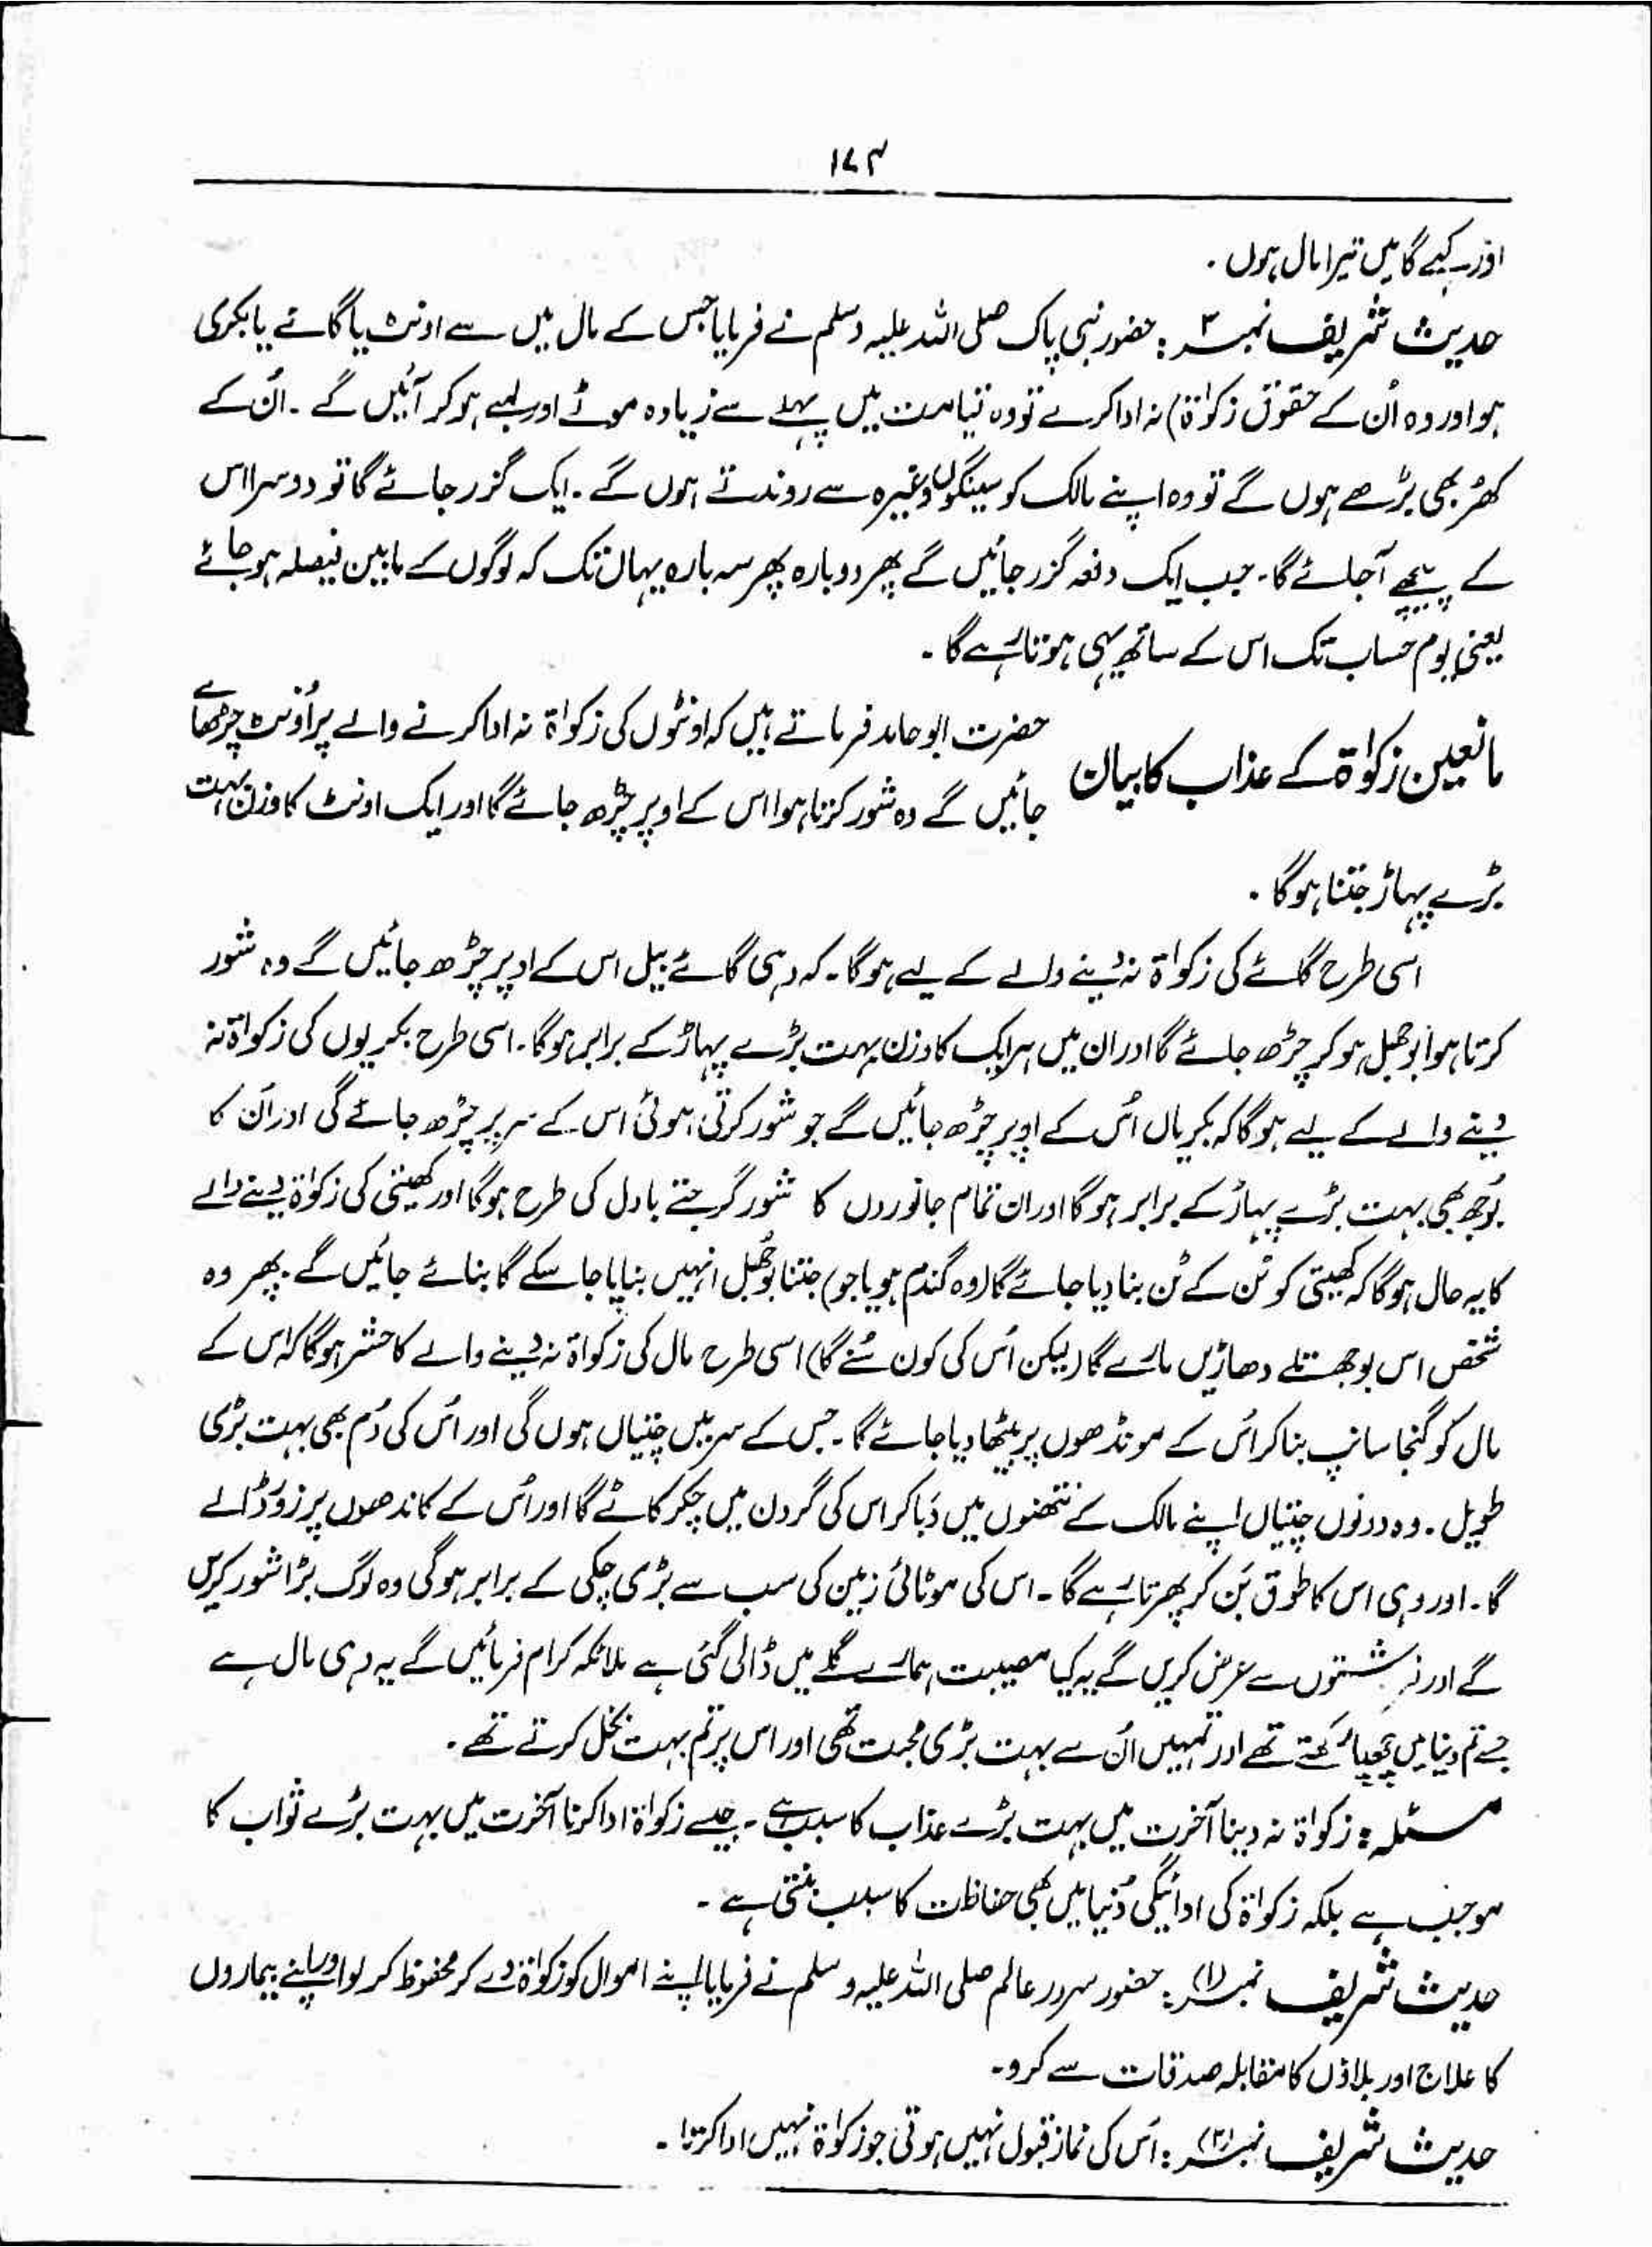 ۱۷۳
اور کہے گا میں تیرا مال ہوں ۔
حدیث شریف نمبر ۳ : حضور نبی پاک صلی اللہ علیہ وسلم نے فرمایا جس کے مال میں سے اونٹ یا گائے یا بکری
ہو اور وہ اُن کے حقوق زکوٰۃ) نہ ادا کرے تو وہ قیامت میں پہلے سے زیادہ موٹے اور لمبے ہو کر آئیں گے ۔ اُن کے
کھُر بھی بڑھے ہوں گے تو وہ اپنے مالک کو سینگوں وغیرہ سے روندتے ہوں گے ۔ ایک گزر جائے گا تو دوسرا اس
کے پیچھے آجائے گا ۔ جب ایک دفعہ گزر جائیں گے پھر دوبارہ پھر سہ بارہ یہاں تک کہ لوگوں کے مابین فیصلہ ہو جائے
یعنی یوم حساب تک اس کے ساتھ یہی ہوتا رہے گا ۔
مانعین زکوٰۃ کے عذاب کا بیان
حضرت ابو حامد فرماتے ہیں کہ اونٹوں کی زکواۃ نہ ادا کرنے والے پر اُونٹ چڑھائے
جائیں گے وہ شور کرتا ہوا اس کے اوپر چڑھ جائے گا اور ایک اونٹ کا وزن بہت
بڑے پہاڑ جتنا ہو گا ۔
اسی طرح گائے کی زکواۃ نہ دینے والے کے لیے ہو گا ۔ کہ وہی گائے بیل اس کے اوپر چڑھ جائیں گے وہ شور
کرتا ہوا بوجھل ہو کر چڑھ جائے گا اور ان میں ہر ایک کا وزن بہت بڑے پہاڑ کے برابر ہو گا ۔ اسی طرح بکریوں کی زکواۃ نہ
دینے والے کے لیے ہو گا کہ بکریاں اُس کے اوپر چڑھ جائیں گے جو شور کرتی ہوئی اس کے سر پر چڑھ جائے گی اور اُن کا
بُوجھ بھی بہت بڑے پہاڑ کے برابر ہو گا اور ان تمام جانوروں کا شور گرجتے بادل کی طرح ہو گا اور کھیتی کی زکوٰۃ دینے والے
کا یہ حال ہو گا کہ کھیتی کو ٹن کے ٹن بنا دیا جائے گا (وہ گندم ہو یا جو) جتنا بوجھل انہیں بنایا جا سکے گا بنائے جائیں گے ۔ پھر وہ
شخص اس بوجھ تلے دھاڑیں مارے گا (لیکن اُس کی کون سُنے گا) اسی طرح مال کی زکواۃ نہ دینے والے کا حشر ہو گا کہ اس کے
مال کو گنجا سانپ بنا کر اُس کے مونڈھوں پر بٹھا دیا جائے گا ۔ جس کے سر میں چتیاں ہوں گی اور اُس کی دُم بھی بہت بڑی
طویل ۔ وہ دونوں چتیاں اپنے مالک کے نتھنوں میں دَبا کر اس کی گردن میں چکر کاٹے گا اور اُس کے کاندھوں پر زور ڈالے
گا ۔ اور وہی اس کا طوق بَن کر پھرتا رہے گا ۔ اس کی موٹائی زمین کی سب سے بڑی چکی کے برابر ہو گی وہ لوگ بڑا شور کریں
گے اور فرشتوں سے عرض کریں گے یہ کیا مصیبت ہمارے گلے میں ڈالی گئی ہے ملائکہ کرام فرمائیں گے یہ وہی مال ہے
جسے تم دنیا میں چھپا رکھتے تھے اور تمہیں اُن سے بہت بڑی محبت تھی اور اس پر تم بہت بخل کرتے تھے ۔
مسئلہ : زکواۃ نہ دینا آخرت میں بہت بڑے عذاب کا سبب ہے ۔ جیسے زکواۃ ادا کرنا آخرت میں بہت بڑے ثواب کا
موجب ہے بلکہ زکواۃ کی ادائیگی دُنیا میں بھی حفاظت کا سبب بنتی ہے ۔
حدیث شریف نمبر (۱) : حضور سرور عالم صلی اللہ علیہ وسلم نے فرمایا اپنے اموال کو زکوٰۃ دے کر محفوظ کر لو اور اپنے بیماروں
کا علاج اور بلاؤں کا مقابلہ صدقات سے کرو ۔
حدیث شریف نمبر (۲) : اُس کی نماز قبول نہیں ہوتی جو زکوٰۃ نہیں ادا کرتا ۔